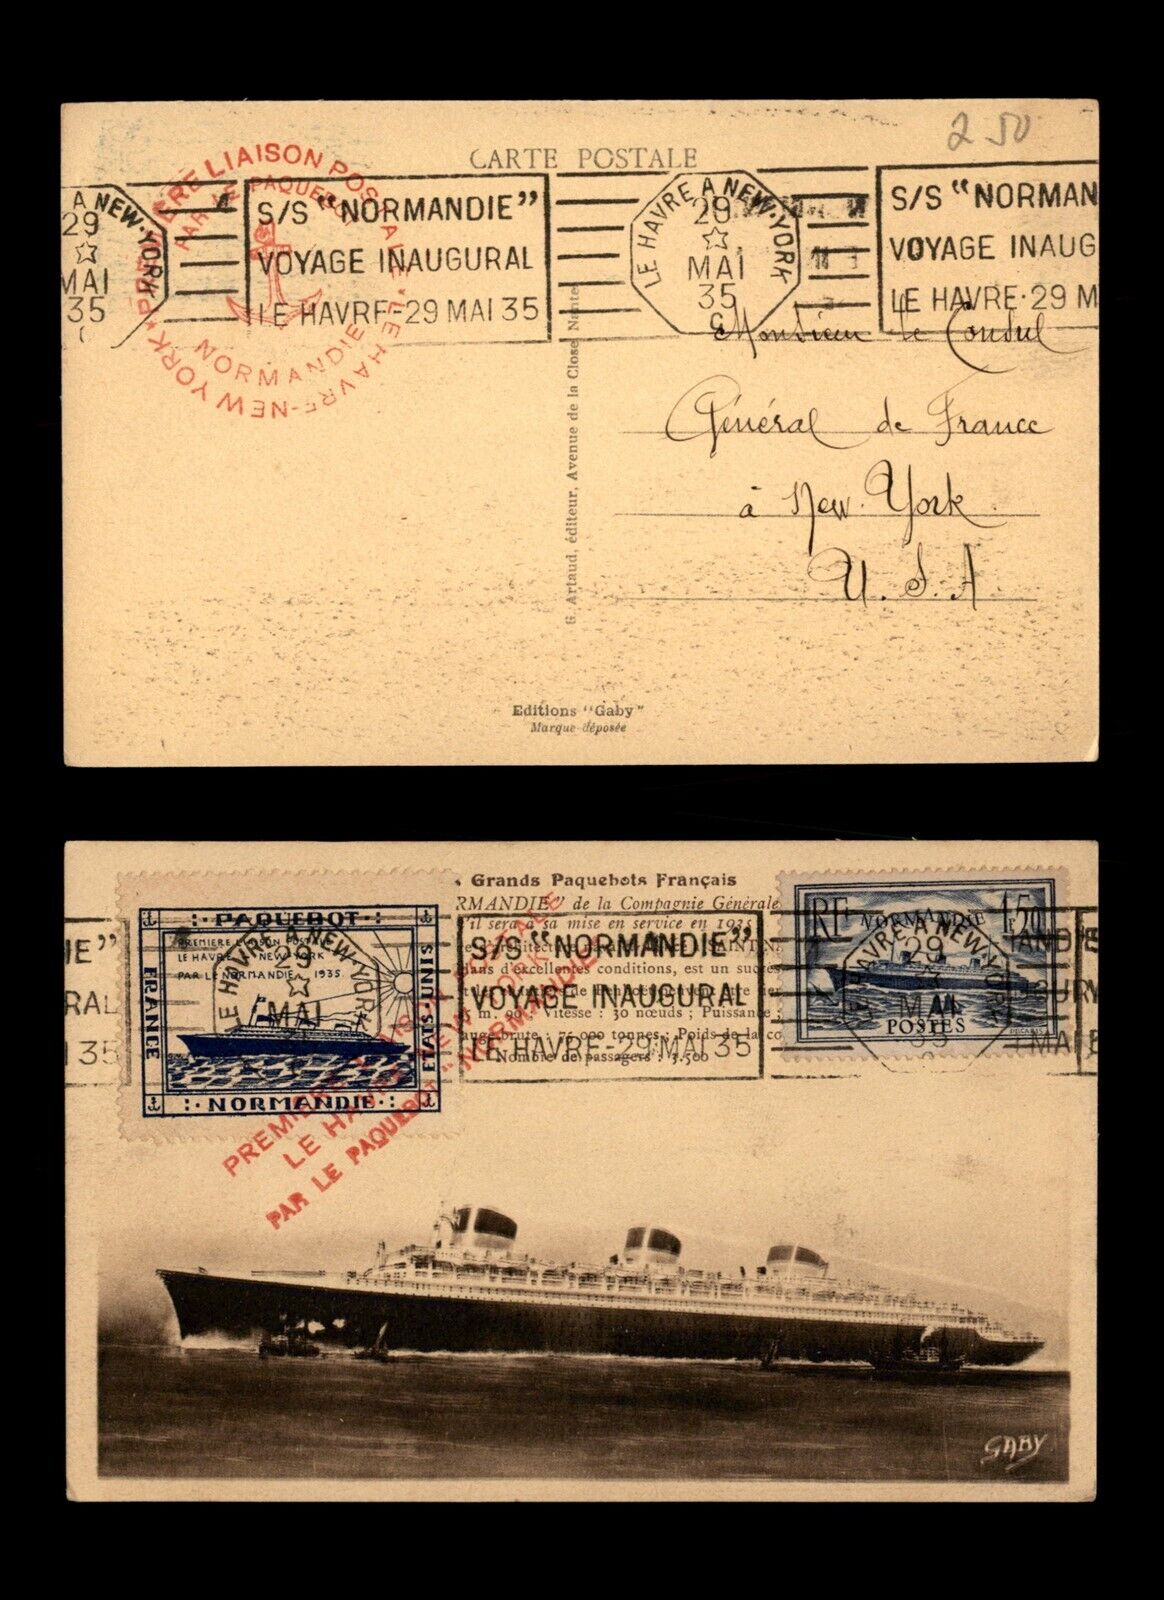 2 50
CARTE POSTALE
PREMIÈRE LIAISON POSTALE • LE HAVRE-NEW YORK ★
PAR LE PAQUEBOT
NORMANDIE
A NEW-YORK
29
MAI
35
S/S "NORMANDIE"
VOYAGE INAUGURAL
LE HAVRE-29 MAI 35
LE HAVRE A NEW-YORK
29
MAI
35
S/S "NORMAN
VOYAGE INAUG
LE HAVRE-29 M
Monsieur le Consul
Général de France
à New. York
U. S. A.
G. Artaud, éditeur, Avenue de la Close Nantes
Editions "Gaby"
Marque déposée
Grands Paquebots Français
RMANDIE" de la Compagnie Générale
'il sera à sa mise en service en 1935
dans d'excellentes conditions, est un succès
Vitesse : 30 nœuds ; Puissance
brute, 75.000 tonnes ; Poids de la co
Nombre de passagers : 3.500
IE"
RAL
I 35
·: PAQUEBOT :·
PREMIERE LIAISON POSTALE
LE HAVRE NEW-YORK
PAR LE NORMANDIE 1935
FRANCE
ETATS-UNIS
·: NORMANDIE :·
LE HAVRE A NEW-YORK
29
MAI
PREMIERE
LE HAVRE
PAR LE PAQUEBOT "NORMANDIE
S/S "NORMANDIE"
VOYAGE INAUGURAL
LE HAVRE-29 MAI 35
RF
NORMANDIE
1F50
POSTES
DECARIS
LE HAVRE A NEW-YORK
29
MAI
35
GABY